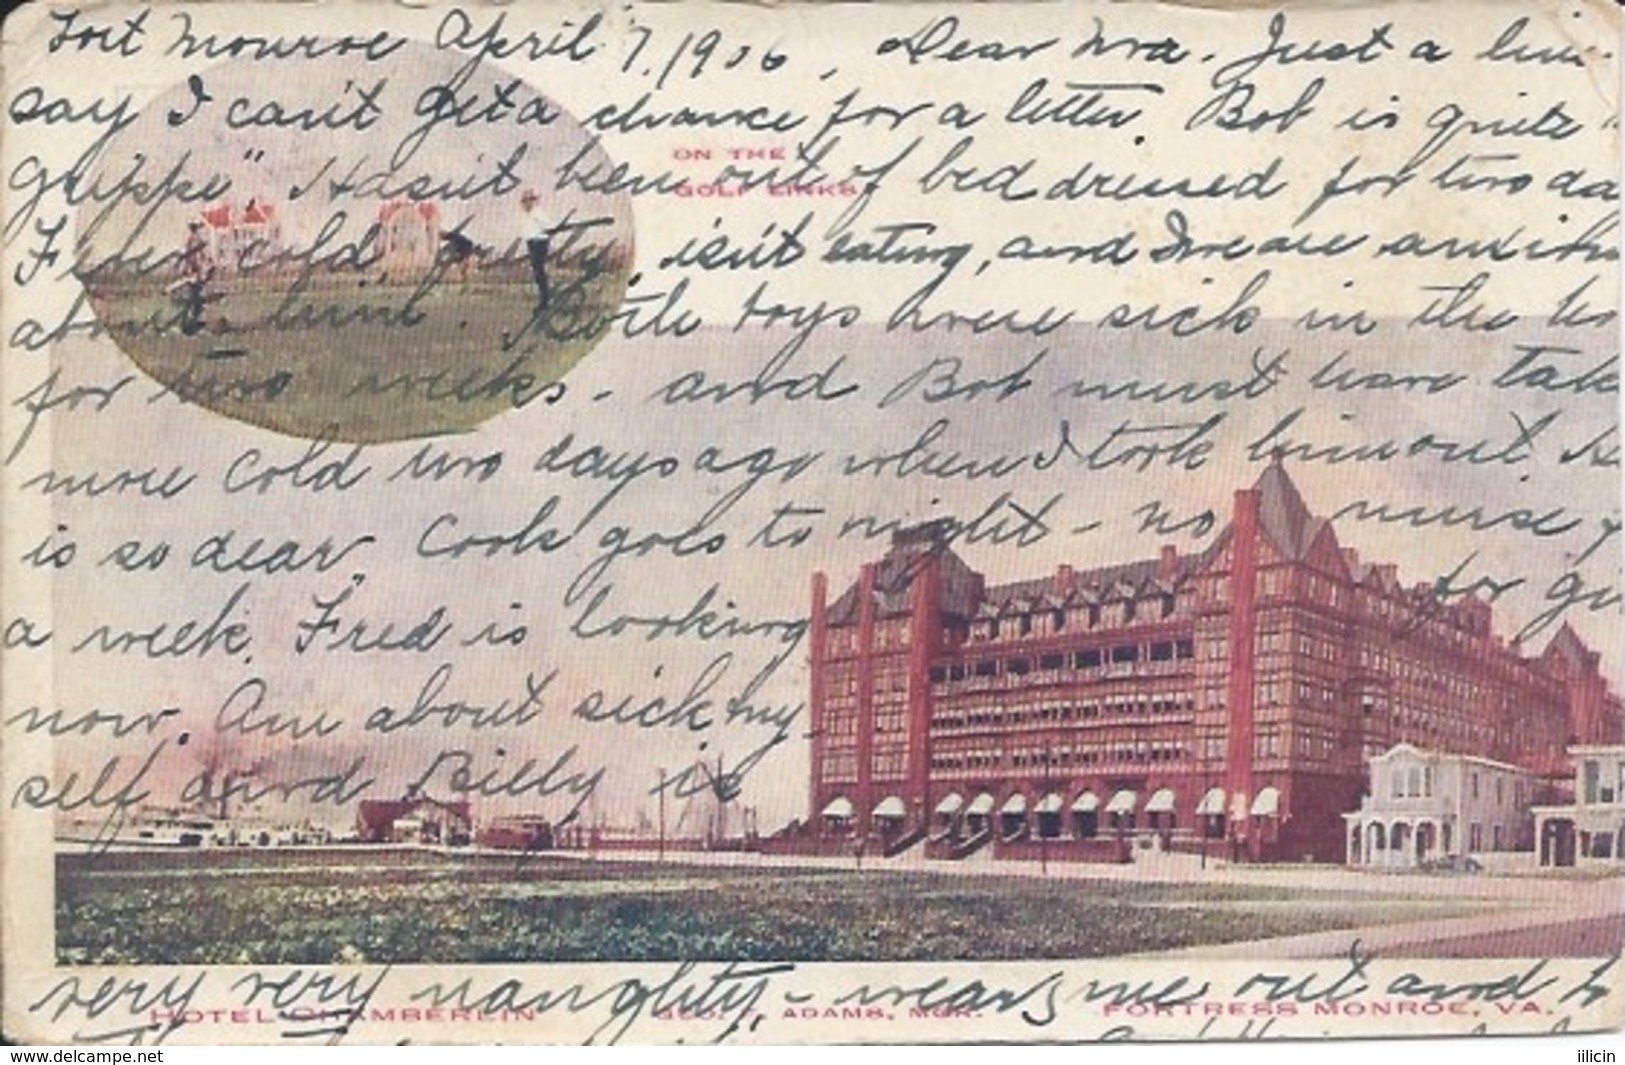 Fort Monroe April 7, 1906, Dear Nra. Just a line
say I can't get a chance for a letter. Bob is quite "
Grippe", Hasn't been out of bed dressed for two da
ON THE
GOLF LINKS
Fever, cold, pretty, isn't eating, and we are
about him. Both boys were sick in the
for two weeks - and Bob must have tak
more cold two days ago when I took him out.
is so dear. Cook goes to night - no nurse
for
a week. Fred is looking
now. Am about sick my-
self and Billy is
very very naughty - wears me out and
HOTEL CHAMBERLIN GEO. F. ADAMS, MGR. FORTRESS MONROE, VA.
delcampe.net
iilicin